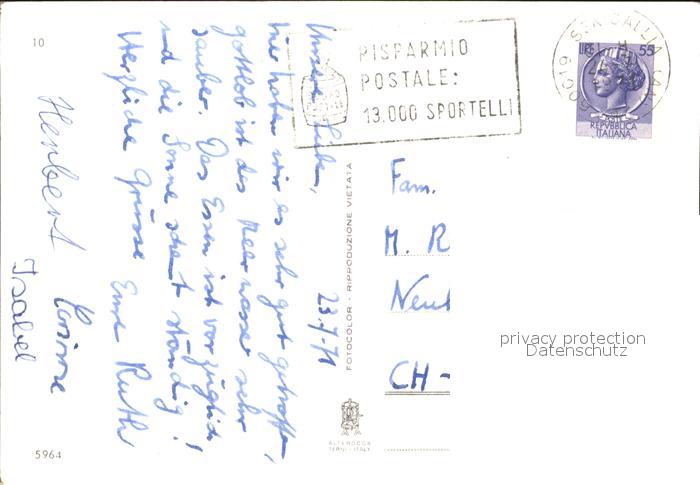 10
23.7.71
Unsere Lieben,
hier haben wir es sehr gut getroffen,
gottlob ist das Meerwasser sehr
sauber. Das Essen ist vorzüglich
und die Sonne scheint ständig!
Herzliche Grüsse Eure Ruth
Herbert Corinne
Isabel
5964
RISPARMIO
POSTALE:
13.000 SPORTELLI
60019 SENIGALLIA
LIRE 55
REPVBBLICA
ITALIANA
FOTOCOLOR - RIPRODUZIONE VIETATA
ALTEROCCA
TERNI - ITALY
Fam.
M. R
Neu
CH -
privacy protection
Datenschutz